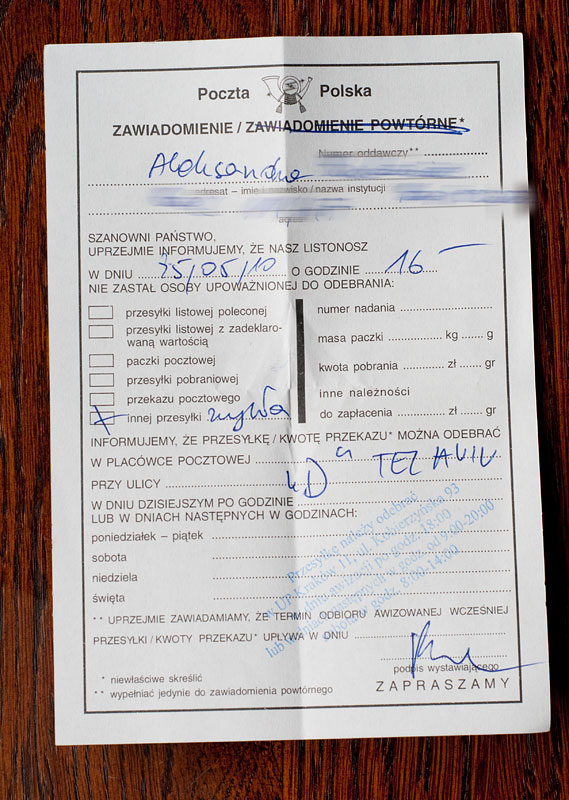 Poczta Polska
ZAWIADOMIENIE / ZAWIADOMIENIE POWTÓRNE*
Numer oddawczy**
Aleksandra
adresat – imię i nazwisko / nazwa instytucji
adres
SZANOWNI PAŃSTWO,
UPRZEJMIE INFORMUJEMY, ŻE NASZ LISTONOSZ
W DNIU 25/05/10 O GODZINIE 16 —
NIE ZASTAŁ OSOBY UPOWAŻNIONEJ DO ODEBRANIA:
przesyłki listowej poleconej
przesyłki listowej z zadeklaro-
waną wartością
paczki pocztowej
przesyłki pobraniowej
przekazu pocztowego
innej przesyłki zwykła
numer nadania
masa paczki kg g
kwota pobrania zł gr
inne należności
do zapłacenia zł gr
INFORMUJEMY, ŻE PRZESYŁKĘ / KWOTĘ PRZEKAZU* MOŻNA ODEBRAĆ
W PLACÓWCE POCZTOWEJ
TEL AVIV
PRZY ULICY
W DNIU DZISIEJSZYM PO GODZINIE
LUB W DNIACH NASTĘPNYCH W GODZINACH:
poniedziałek – piątek
sobota
niedziela
święta
Przesyłkę należy odebrać
w UP Kraków 11, ul. Kobierzyńska 93
w dniu awizacji po godz. 18:00
lub w dniach następnych w godz. od 8:00-20:00
sobota w godz. 8:00-14:00
** UPRZEJMIE ZAWIADAMIAMY, ŻE TERMIN ODBIORU AWIZOWANEJ WCZEŚNIEJ
PRZESYŁKI / KWOTY PRZEKAZU* UPŁYWA W DNIU
podpis wystawiającego
* niewłaściwe skreślić
** wypełniać jedynie do zawiadomienia powtórnego
ZAPRASZAMY